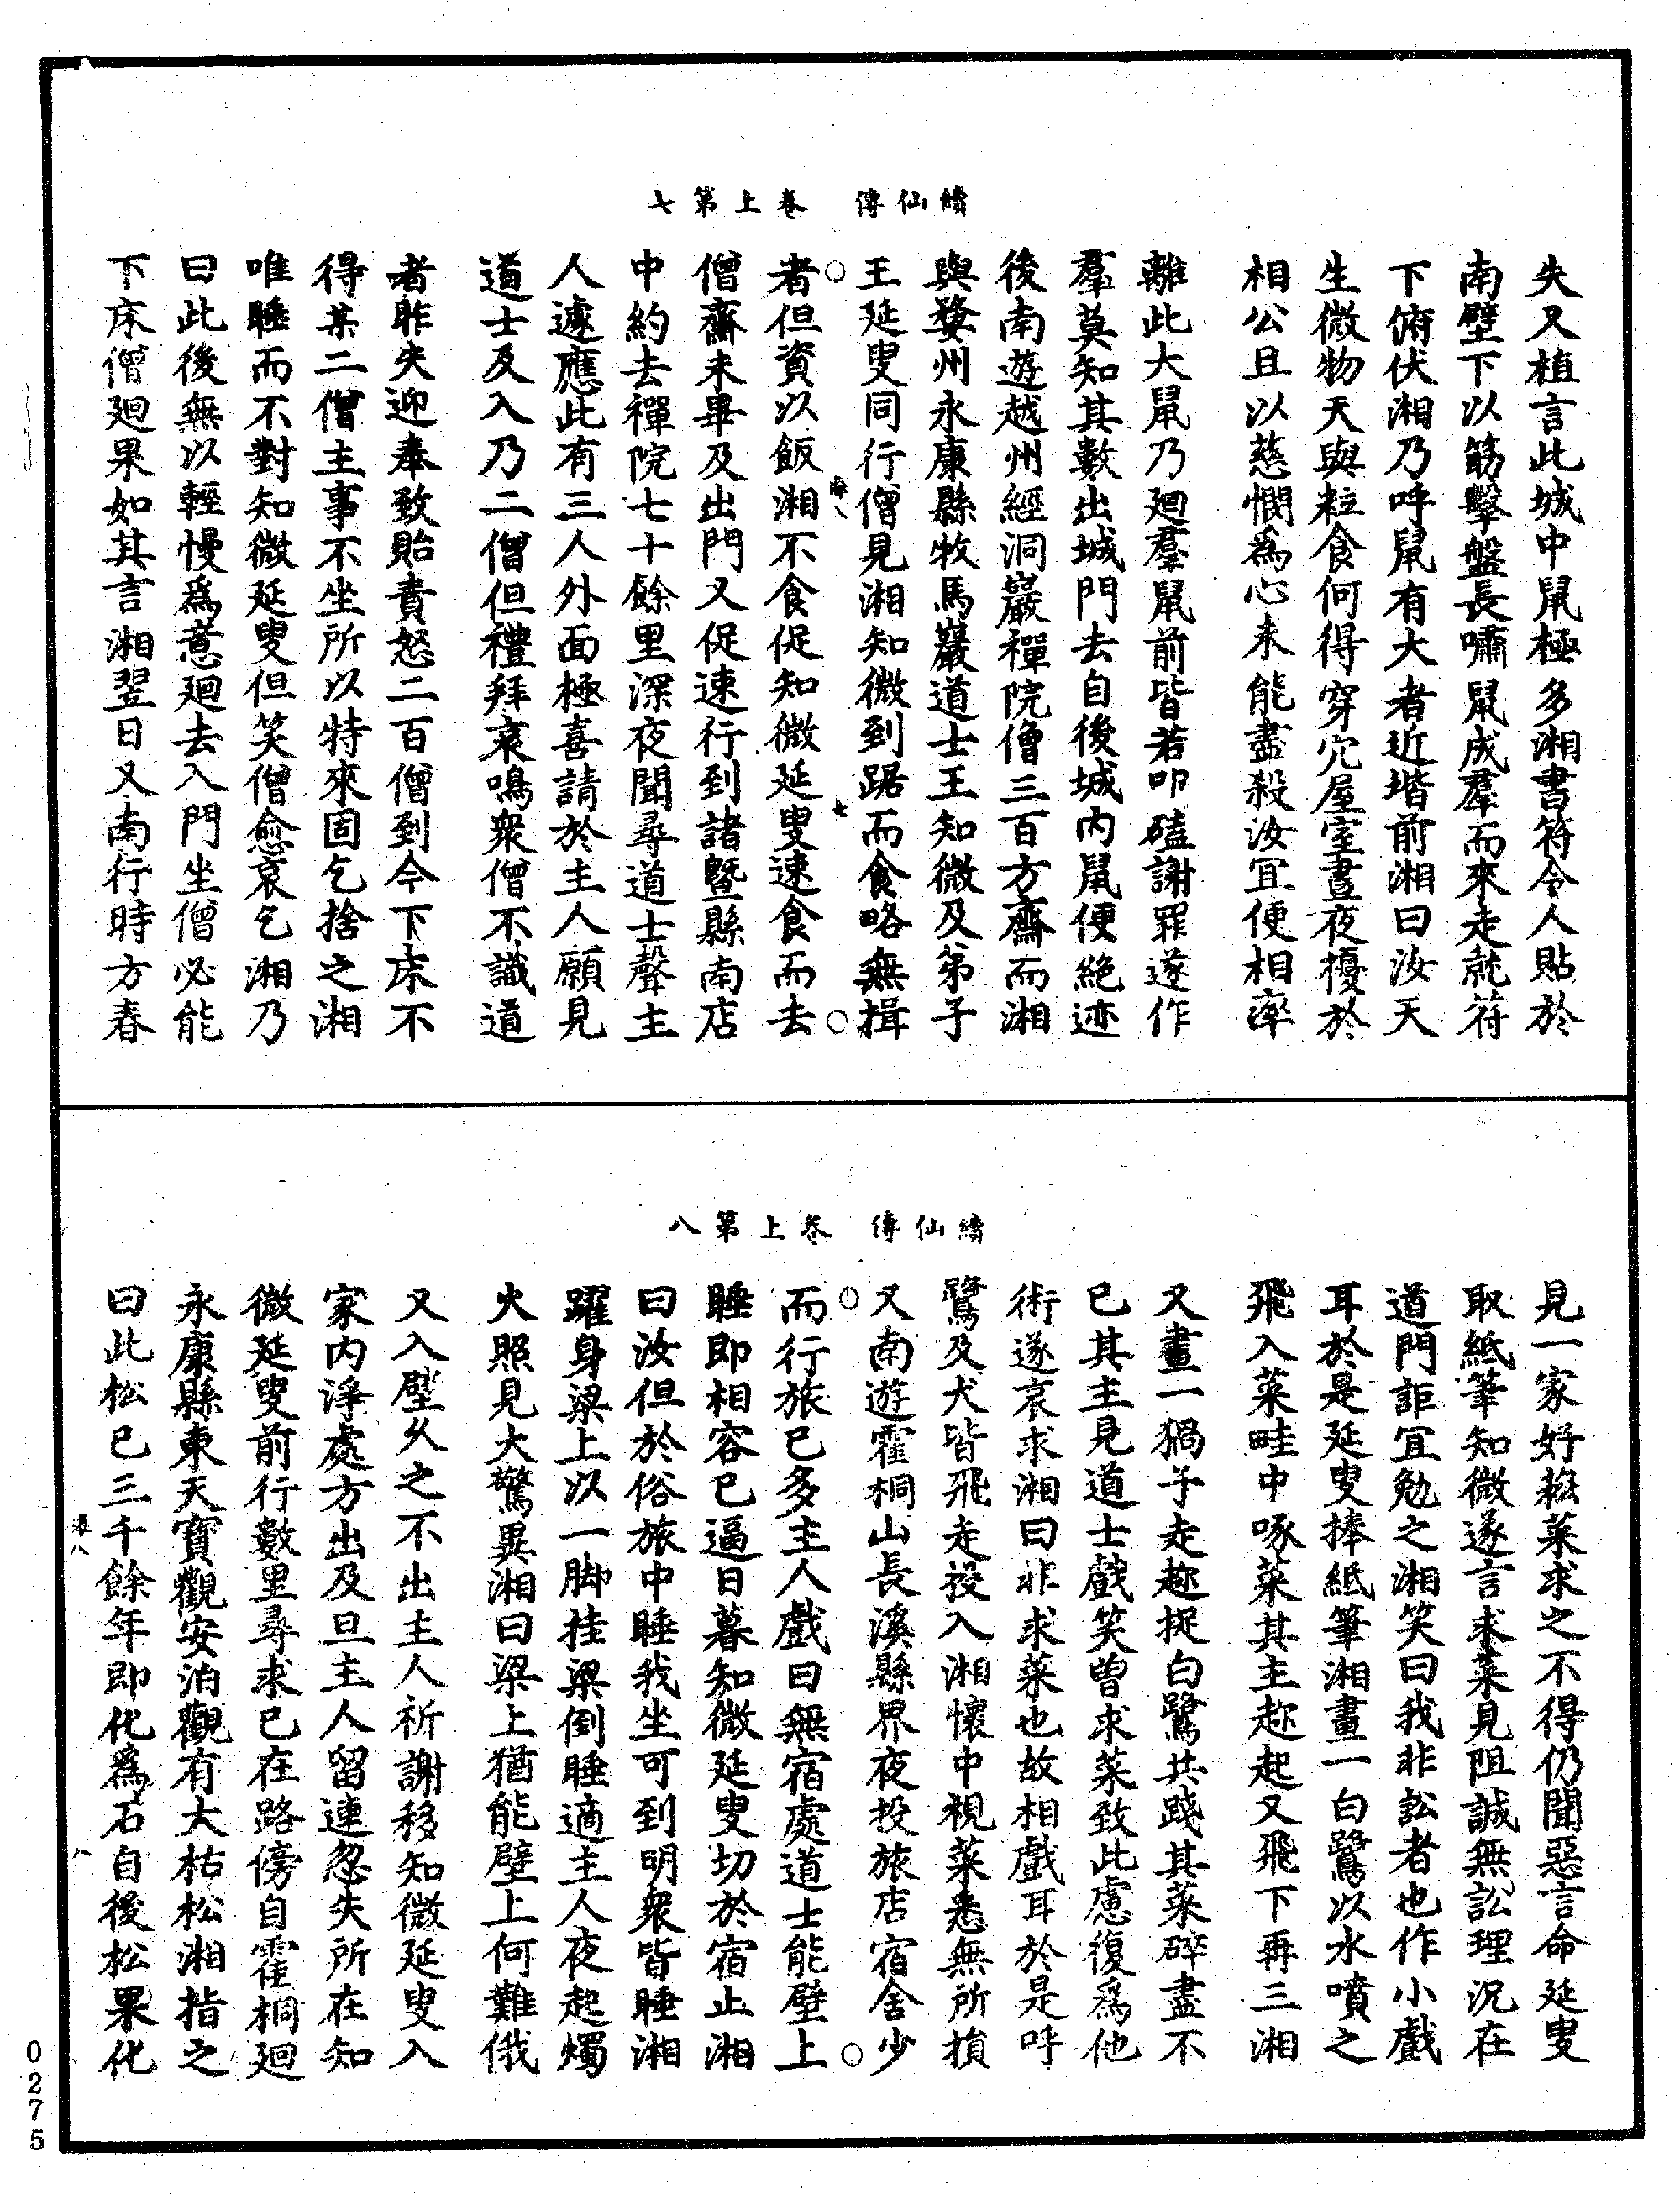 續仙傳　卷上第七
失又植言此城中鼠極多湘書符令人貼於
南壁下以筯擊盤長嘯鼠成羣而來走就符
下俯伏湘乃呼鼠有大者近堦前湘曰汝天
生微物天與粒食何得穿穴屋室晝夜擾於
相公且以慈憫爲心未能盡殺汝宜便相率
離此大鼠乃迴羣鼠前皆若叩磕謝罪遂作
羣莫知其數出城門去自後城內鼠便絕迹
後南遊越州經洞巖禪院僧三百方齋而湘
與婺州永康縣牧馬巖道士王知微及弟子
王延叟同行僧見湘知微到踞而食略無揖
者但資以飯湘不食促知微延叟速食而去
僧齋未畢及出門又促速行到諸暨縣南店
中約去禪院七十餘里深夜聞尋道士聲主
人遽應此有三人外面極喜請於主人願見
道士及入乃二僧但禮拜哀鳴衆僧不識道
者昨失迎奉致貽責怒二百僧到今下床不
得某二僧主事不坐所以特來固乞捨之湘
唯睡而不對知微延叟但笑僧愈哀乞湘乃
曰此後無以輕慢爲意迴去入門坐僧必能
下床僧迴果如其言湘翌日又南行時方春
續仙傳　卷上第八
見一家好菘菜求之不得仍聞惡言命延叟
取紙筆知微遂言求菜見阻誠無訟理況在
道門詎宜勉之湘笑曰我非訟者也作小戲
耳於是延叟捧紙筆湘畫一白鷺以水噴之
飛入菜畦中啄菜其主趂起又飛下再三湘
又畫一猧子走趂捉白鷺共踐其菜碎盡不
已其主見道士戲笑曾求菜致此慮復爲他
術遂哀求湘曰非求菜也故相戲耳於是呼
鷺及犬皆飛走投入湘懷中視菜悉無所損
又南遊霍桐山長溪縣界夜投旅店宿舍少
而行旅已多主人戲曰無宿處道士能壁上
睡即相容已逼日暮知微延叟切於宿止湘
曰汝但於俗旅中睡我坐可到明衆皆睡湘
躍身梁上以一脚挂梁倒睡適主人夜起燭
火照見大驚異湘曰梁上猶能壁上何難俄
又入壁久之不出主人祈謝移知微延叟入
家內淨處方出及旦主人留連忽失所在知
微延叟前行數里尋求已在路傍自霍桐迴
永康縣東天寶觀安泊觀有大枯松湘指之
曰此松已三千餘年即化爲石自後松果化
0275